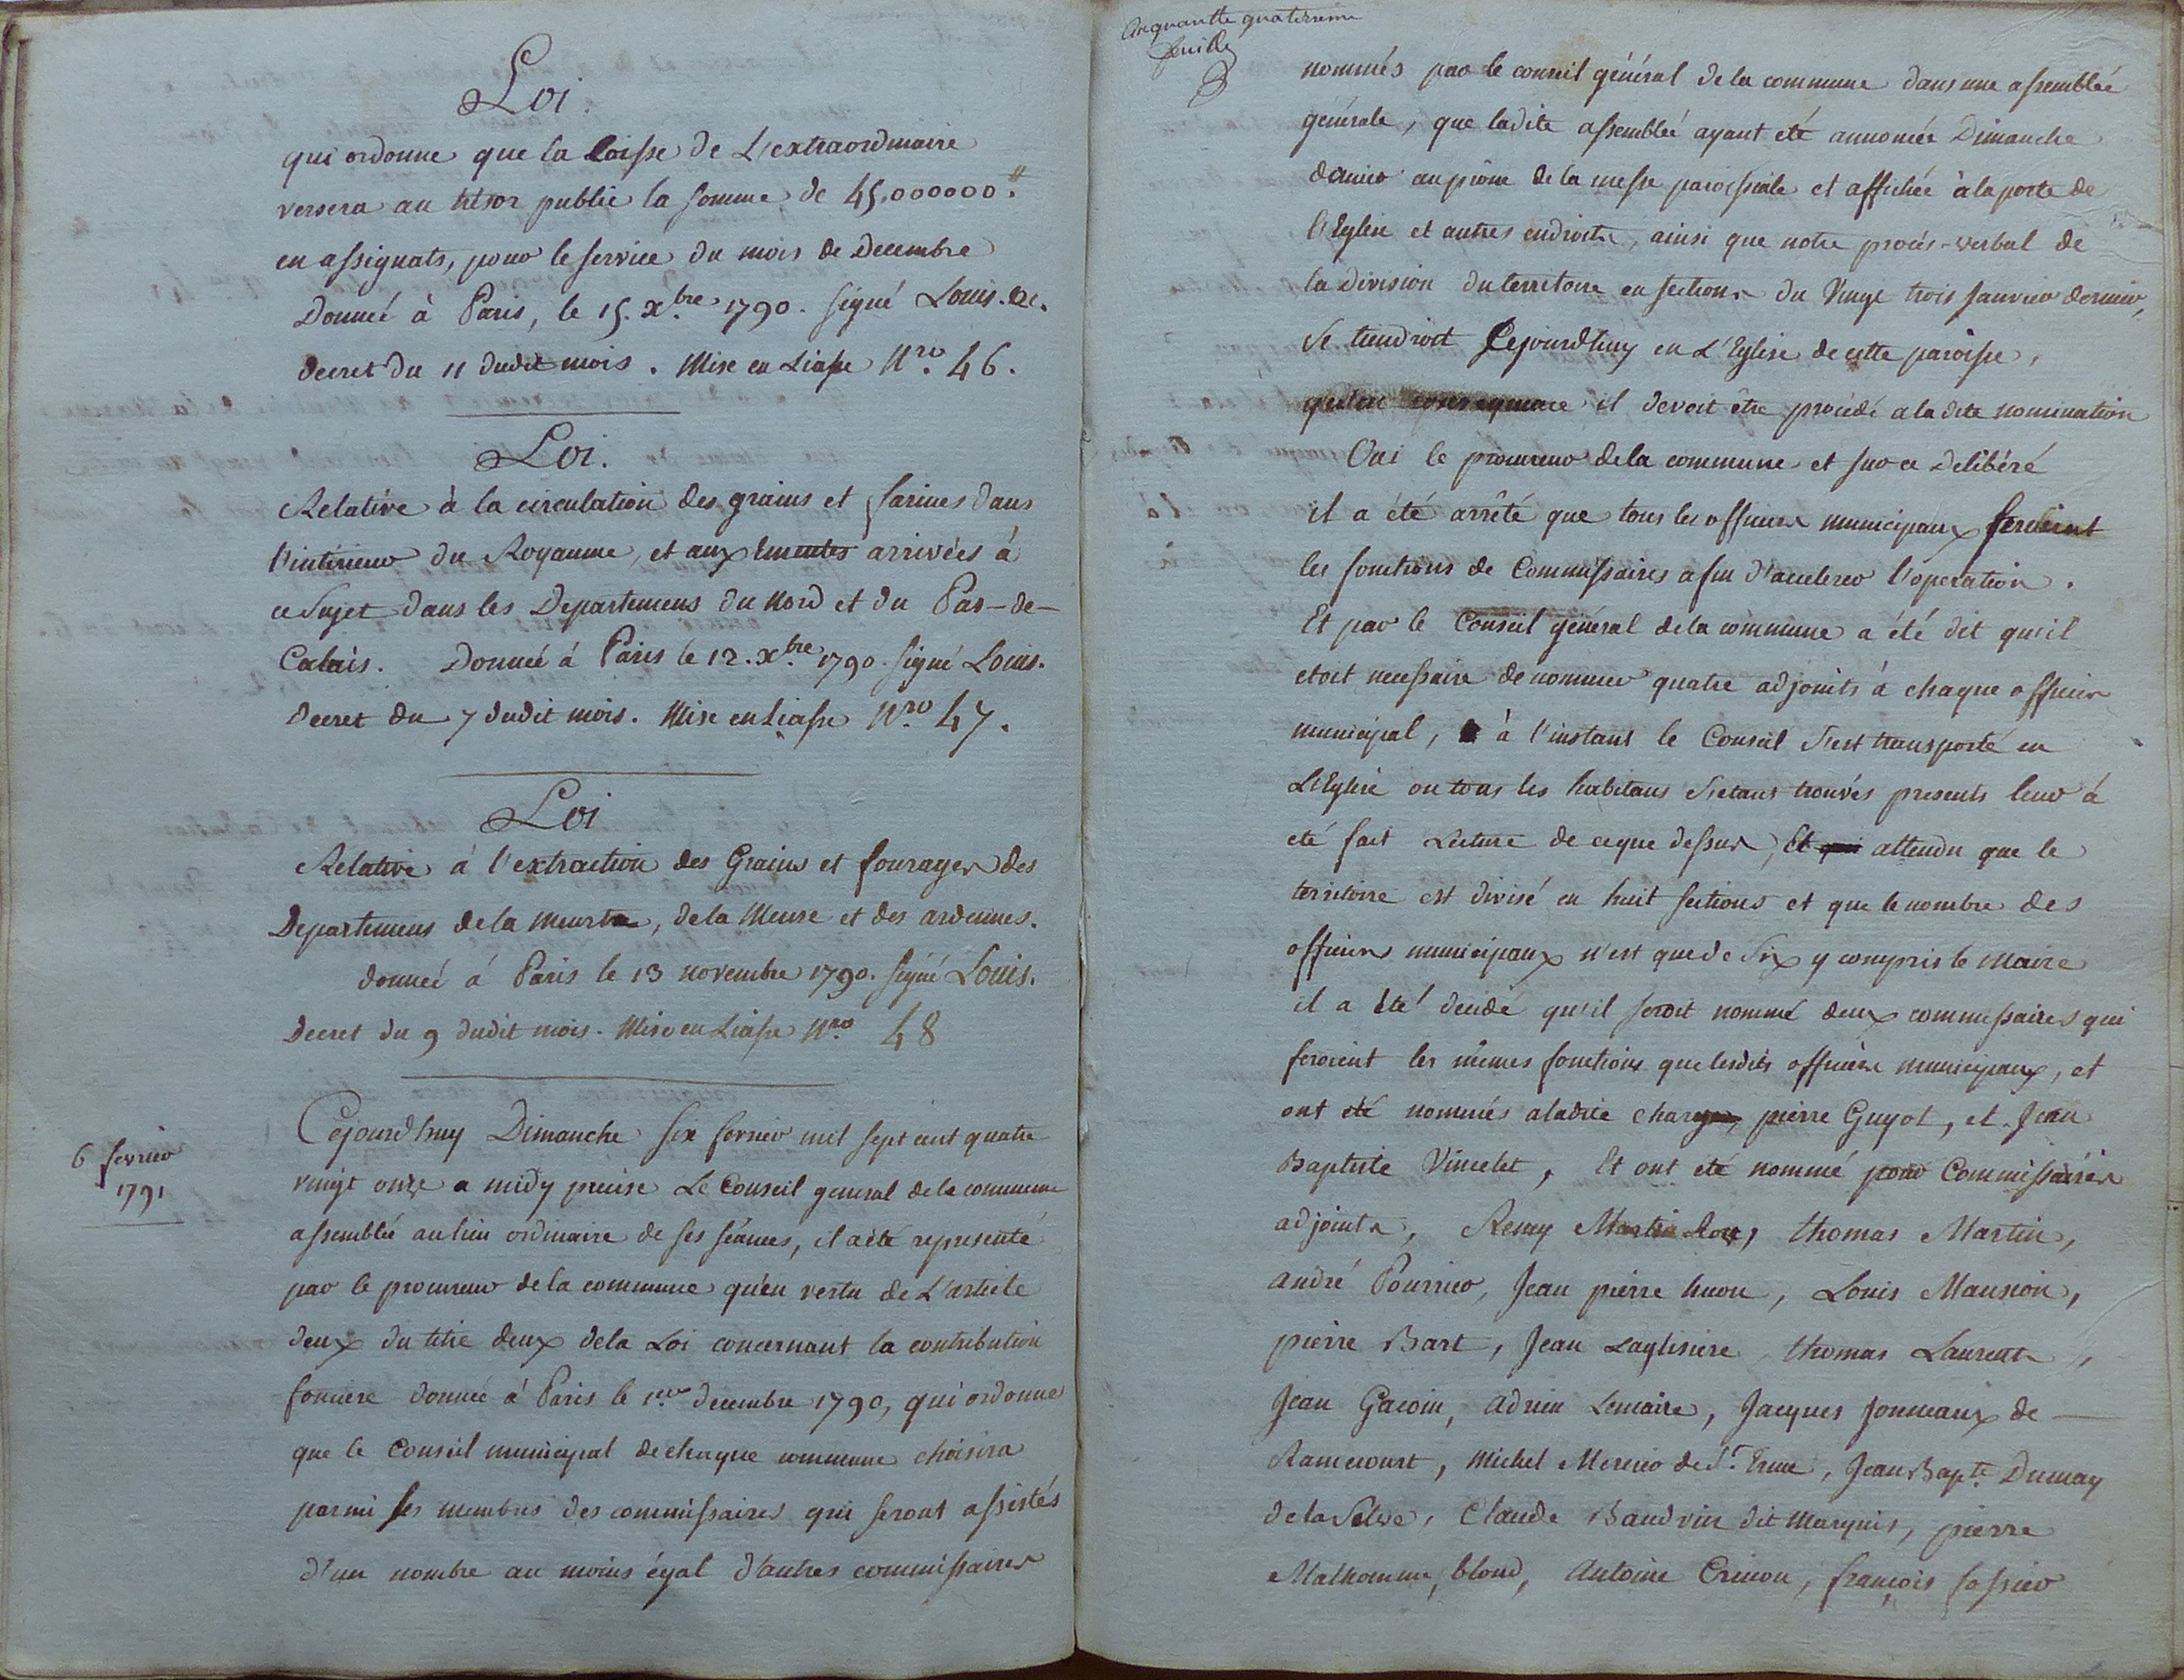 Loi.
qui ordonne que la Caisse de L'extraordinaire
versera au trésor public la somme de 45.000000.#
en assignats, pour le service du mois de Decembre
Donneé à Paris, le 15. xbre. 1790. signé Louis. &c.
Decret du 11 dudit mois. Mise en Liasse Nro. 46.
Loi.
Relative à la circulation des grains et farines dans
l'intérieur du Royaume, et aux Emeutes arrivées à
ce Sujet dans les Departemens du Nord et du Pas-de-
Calais. Donneé à Paris le 12. xbre. 1790. signé Louis.
Decret du 7 dudit mois. Mise en Liasse Nro. 47.
Loi
Relative à l'extraction des Grains et fourages des
Departemens de la Meurte, de la Meuse et des ardennes.
donneé à Paris le 13 novembre 1790. signé Louis.
Decret du 9 dudit mois. Mise en Liasse Nro. 48
6 fevrier
1791
Cejourdhuy Dimanche six fevrier mil sept cent quatre
vingt onze a midy precise Le Conseil general de la commune
assemblée au lieu ordinaire de ses séances, il a été representé
par le procureur de la commune qu'en vertu de L'article
deux du titre deux de la Loi concernant la contribution
fonciere donneé à Paris le 1er. decembre 1790, qui ordonne
que le Conseil municipal de chaque commune choisira
parmi ses membres des commissaires qui seront assistés
d'un nombre au moins égal d'autres commissaires
Cinquantte quatrieme
feuille
nommés par le conseil général de la commune dans une assemblée
générale, que ladite assembleé ayant eté annoncée Dimanche
dernier au prône de la messe paroissiale et affichée à la porte de
l'Eglise et autres endroits, ainsi que notre procés-verbal de
la division du territoire en sections du Vingt trois Janvier dernier,
Se tiendroit Cejourdhuy en L'Eglise de cette paroisse,
qu'en consequence il devoit être procédé a la dite nomination
Oui le procureur de la commune et sur ce Délibéré
il a été arrêté que tous les officiers municipaux feroient
les fonctions de Commissaires afin d'accelerer l'operation.
Et par le Conseil général de la commune a été dit qu'il
etoit necessaire de nommer quatre adjoints à chaque officier
municipal, à l'instant le Conseil s'est transporté en
L'Eglise ou tous les habitans s'etant trouvés presents leur à
eté fait Lecture de ce que dessus, Et attendu que le
territoire est divisé en huit sections et que le nombre des
officiers municipaux n'est que de Six y compris le maire
il a été decidé qu'il seroit nommé deux commissaires qui
feroient les mêmes fonctions que lesdits officiers municipaux, et
ont eté nommés a ladite charge, pierre Guyot, et Jean
Baptiste Vincelet, Et ont eté nommé pour Commissaires
adjoints, Remy Martin thomas Martin,
andré Pourrier, Jean pierre huon, Louis Mansion,
pierre Bart, Jean Laglisiere, thomas Laurent,
Jean Gacoin, adrien Lemaire, Jacques Jonneaux de
Ramecourt, Michel Mercier de St. Erme, Jean Bapte. Dumay
de la Selve, Claude Baudvin dit Marquis, pierre
Malhomme, blond, Antoine Crinon, françois